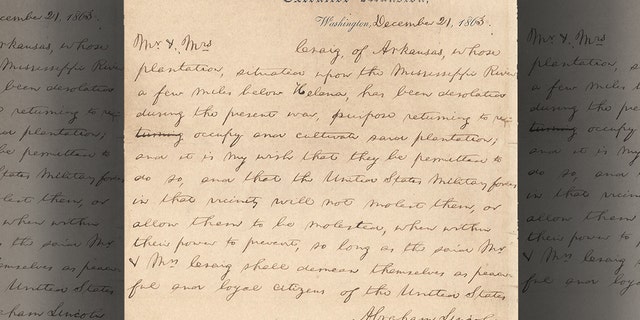 Executive Mansion,
Washington, December 21, 1863.
Mr & Mrs Craig, of Arkansas, whose
plantation, situated upon the Mississippi River
a few miles below Helena, has been desolated
during the present war, purpose returning to re-
turning occupy and cultivate said plantation;
and it is my wish that they be permitted to
do so, and that the United States Military forces
in that vicinity will not molest them, or
allow them to be molested, when within
their power to prevent, so long as the said Mr
& Mrs Craig shall demean themselves as peace
ful and loyal citizens of the United States
Abraham Lincoln